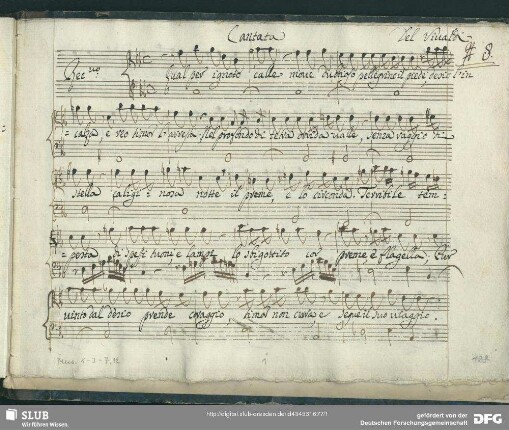 Cantata Del Vivaldi
8.
Rec.vo Qual per ignoto calle move dubioso pellegrino il piede, desio l'in
= calza, e reo timor l'arresta. Nel profondo di selva horrida valle, senza raggio di
stella caligi = nosa notte il preme, e lo circonda. Terribile tem =
= pesta di spessi tuoni e lampi lo sbigottito cor preme e flagella, Pur
vinto dal desio prende coraggio, timor non cura e segue il suo viaggio.
1
SLUB
Wir führen Wissen.
http://digital.slub-dresden.de/id434531677/1
gefördert von der
Deutschen Forschungsgemeinschaft
DFG